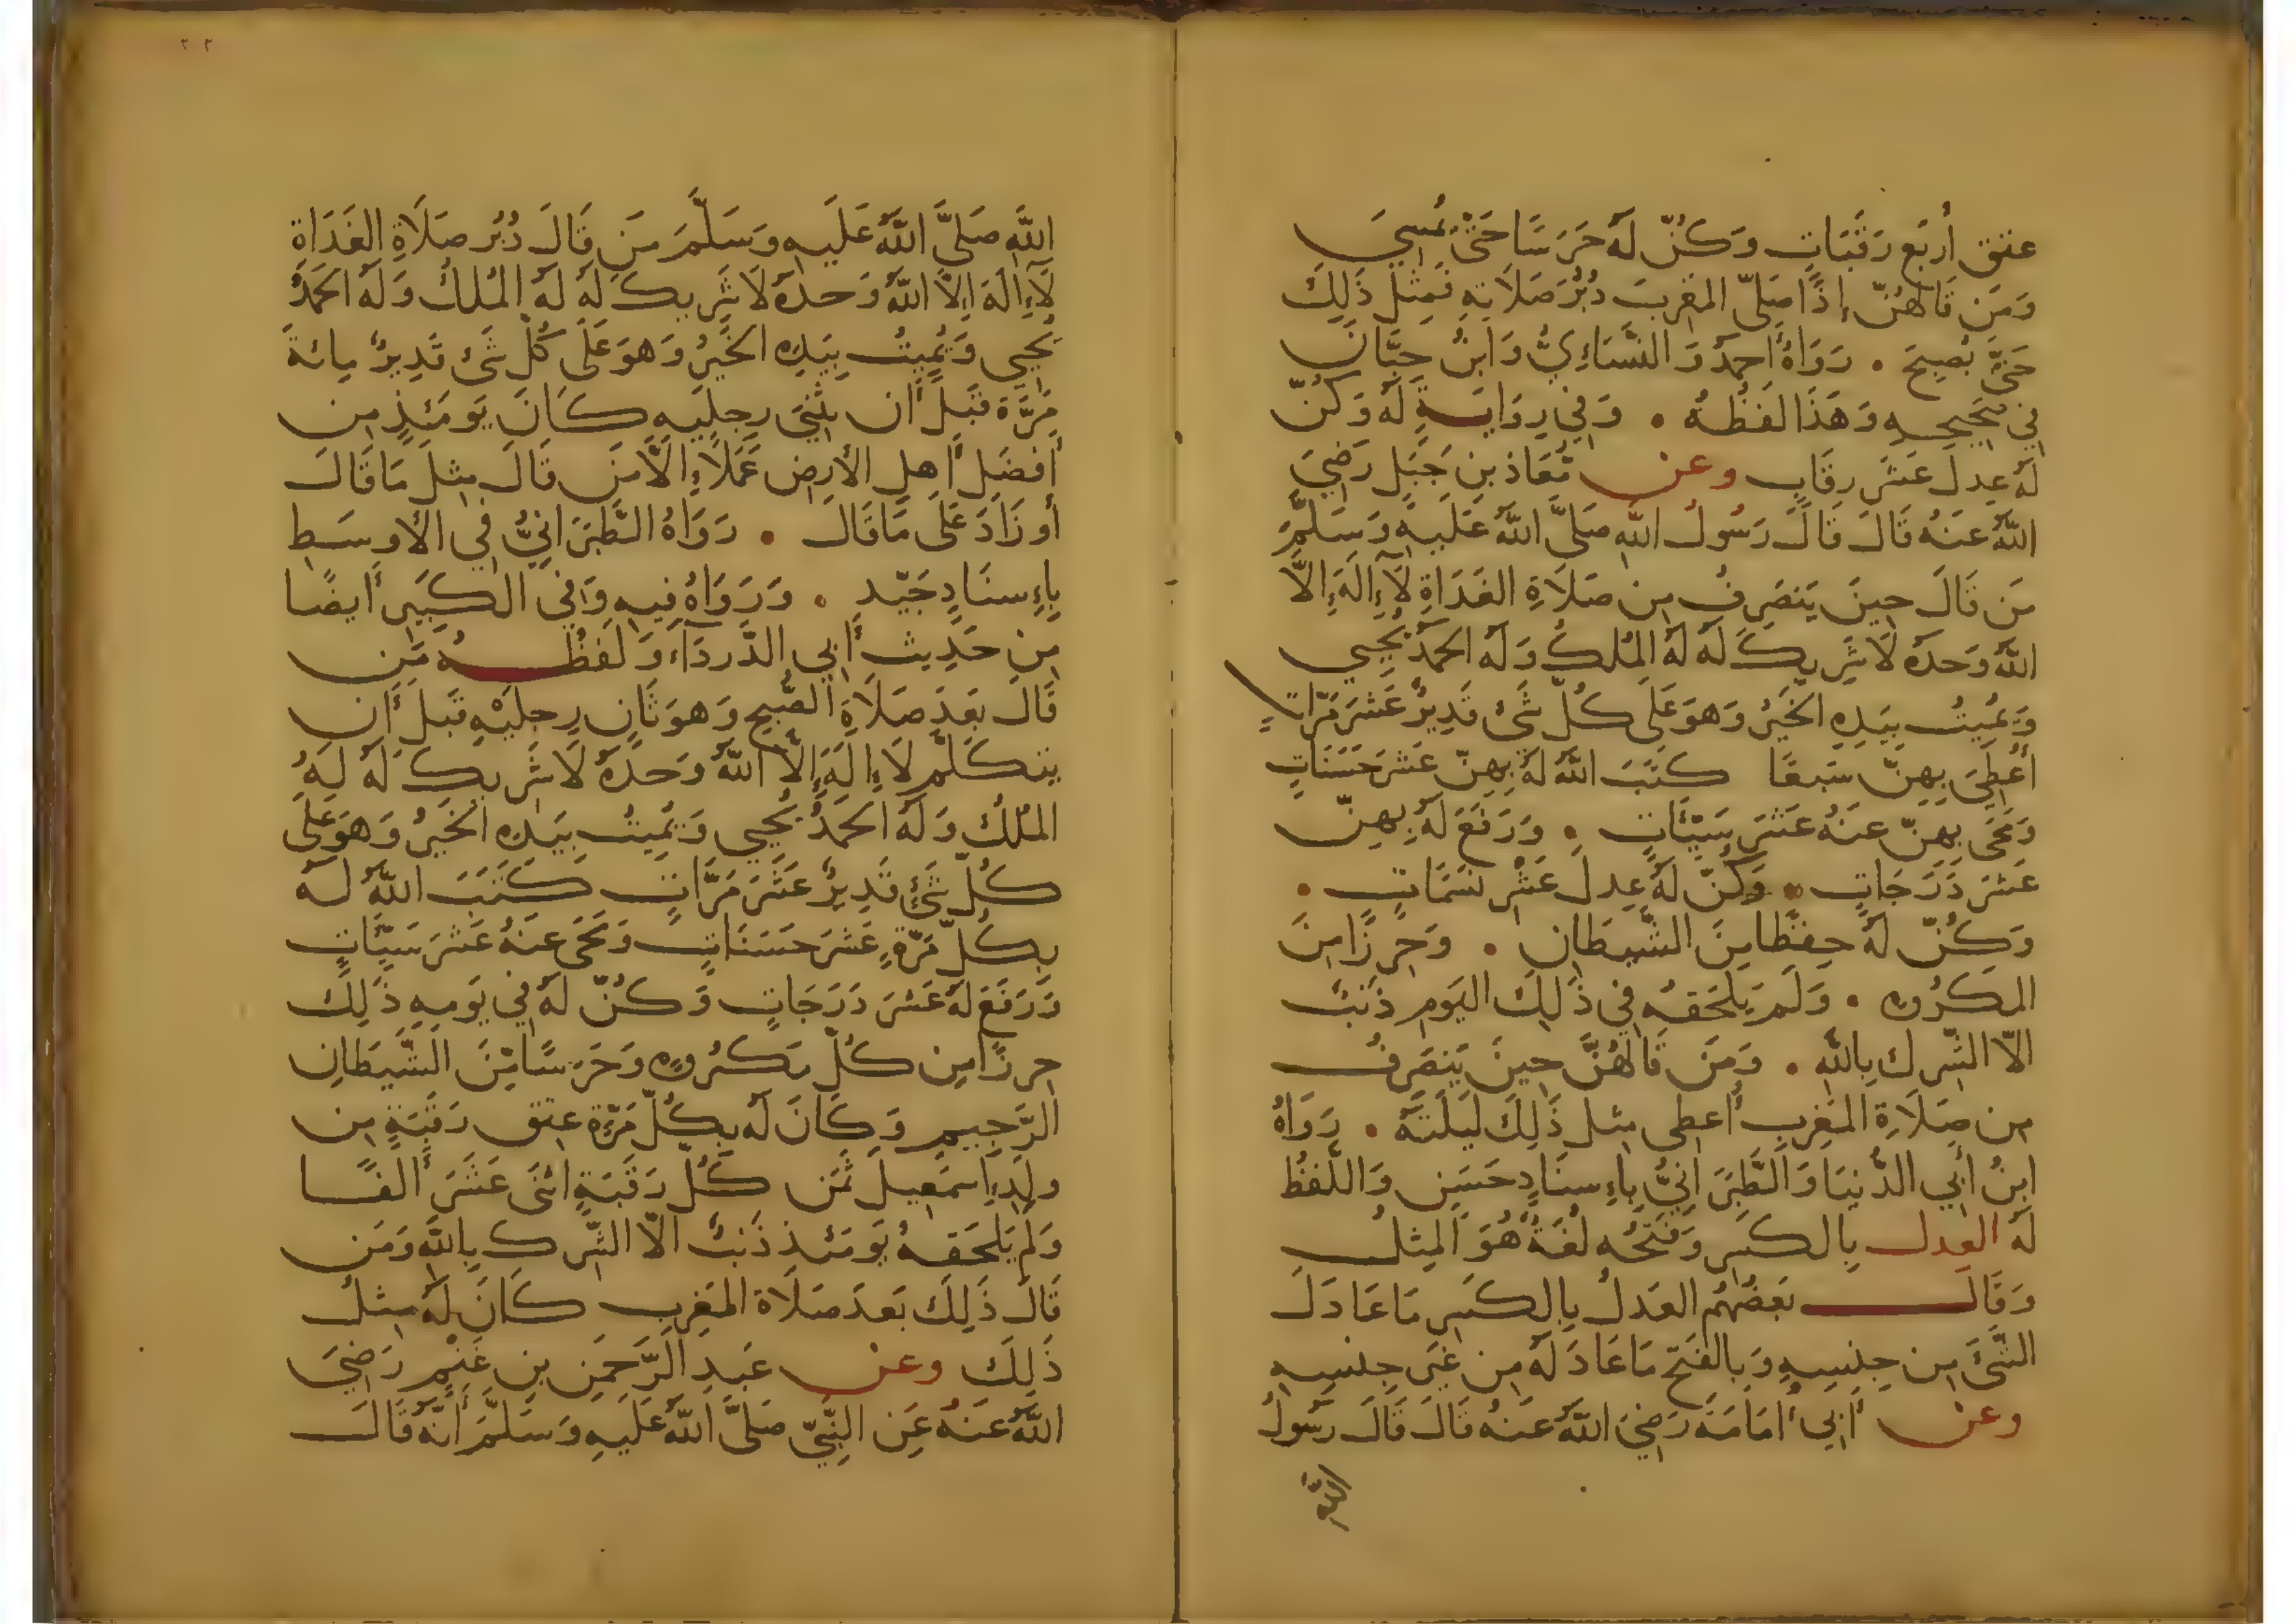 عتق أربَع رَقَبَاتٍ وَكُنّ لَهُ حَرَسًا حَتَّى يُمسِيَ
وَمَن قَالَهُنّ إِذَا صَلَّى المَغرِبَ دُبُرَ صَلَاتِهِ فَمِثلُ ذَلِكَ
حَتَّى يُصبِحَ . رَوَاهُ أَحمدُ وَالنَّسَاءِيُّ وَابنُ حِبَّانَ
فِي صَحِيحِهِ وَهَذَا لَفظُهُ . وَفِي رِوَايَةٍ لَهُ وَكُنّ
لَهُ عِدلَ عَشَرِ رِقَابٍ وعن مُعَاذ بنِ جَبَلٍ رَضِيَ
اللَّهُ عَنهُ قَالَ قَالَ رَسُولُ اللَّهِ صَلَّى اللَّهُ عَلَيهِ وَسَلَّمَ
مَن قَالَ حِينَ يَنصَرِفُ مِن صَلَاةِ الغَدَاةِ لَآ إِلَهَ إِلَّا
اللَّهُ وَحدَهُ لَا شَرِيكَ لَهُ لَهُ المُلكُ وَلَهُ الحَمدُ يُحيِي
وَيُمِيتُ بِيَدِهِ الخَيرُ وَهوَ عَلَى كُلّ شَىْءٍ قَدِيرٌ عَشرَ مَرّاتٍ
أُعطِيَ بِهِنّ سَبعًا كَتَبَ اللَّهُ لَهُ بِهِنّ عَشرَ حَسَنَاتٍ
وَمَحَى بِهِنّ عنهُ عَشرَ سَيّئَاتٍ . وَرَفَعَ لَهُ بِهِنّ
عَشرَ دَرَجَاتٍ . وَكُنّ لَهُ عِدلَ عَشْرِ نَسَمَاتٍ .
وَكُنّ لَهُ حِفظًا مِنَ الشَّيطَانِ . وَحِرزًا مِنَ
المَكرُوهِ . وَلَم يَلحَقهُ فِي ذَلِكَ اليَومِ ذَنبٌ
الّا الشّركَ بِاللَّهِ . وَمَن قَالَهُنَّ حِينَ يَنصَرِفُ
مِن صَلَاةِ المَغرِبِ أُعطِى مِثل ذَلِكَ لَيلَتَهُ . رَوَاهُ
ابنُ أَبِي الدُّنيَا وَالطَّبَرَانِيُّ بِإِسنَادٍ حَسَنٍ وَاللَّفظُ
لَهُ العِدل بِالكَسرِ وَفَتحُه لُغَةً هُوَ المِثلُ
وَقَالَ بَعضُهُم العَدلُ بِالكَسرِ مَا عَادَلَ
الشَّىْءَ مِن جِنسِهِ وَبِالفَتحِ مَا عَادَ لَهُ مِن غَيرِ جِنسِهِ
وعن أَبِي أُمَامَةَ رَضِيَ اللَّهُ عَنهُ قَالَ قَالَ رَسُولُ
اللَّهِ
٢٢
اللَّهِ صَلَّى اللَّهُ عَلَيهِ وَسَلَّمَ مَن قَالَ دُبُر صَلَاةِ الغَدَاةِ
لَآ إِلَهَ إِلَّا اللَّهُ وَحدَهُ لَا شَرِيكَ لَهُ لَهُ المُلكُ وَلَهُ الحَمدُ
يُحيِي وَيُمِيتُ بِيَدِهِ الخَيرُ وَهوَ عَلَى كُلّ شَىْءٍ قَدِيرٌ مِائةَ
مَرَّة قَبلَ أَن يثنِيَ رِجلَيهِ كَانَ يَومَئِذٍ مِن
أَفضَلِ أَهلِ الأَرضِ عَمَلاً إِلَّا مَن قَالَ مِثلَ مَا قَالَ
أَو زَادَ عَلَى مَا قَالَ . رَوَاهُ الطَّبَرَانِيُّ فِي الأَوسَطِ
بِإِسنَادٍ جَيّدٍ . وَرَوَاهُ فِيهِ وَفِي الكَبِيرِ أَيضًا
مِن حَدِيث أَبِي الدَّردَآءِ وَلَفظُهُ مَن
قَالَ بَعدَ صَلَاةِ الصُّبحِ وَهوَ ثَانٍ رِجلَيْهِ قَبلَ أَن
يتكَلَّمَ لَا إِلَهَ إِلَّا اللَّهُ وَحدَهُ لَا شَرِيكَ لَهُ لَهُ
المُلكُ وَلَهُ الحَمدُ يُحيِي وَيُمِيتُ بِيَدِهِ الخَيرُ وَهوَ عَلَى
كُلّ شَىْءٍ قَدِيرٌ عَشَرَ مَرَّاتٍ كَتَبَ اللَّهُ لَهُ
بِكُلّ مَرّةٍ عَشرَ حَسَنَاتٍ وَمَحَى عَنهُ عَشرَ سَيّئَاتٍ
وَرَفَعَ لَهُ عَشرَ دَرَجَاتٍ وَكُنّ لَهُ فِي يَومِهِ ذَلِكَ
حِرزًا مِن كُلّ مَكرُوهٍ وَحَرَسًا مِنَ الشَّيطَانِ
الرَّجِيمِ وَكَانَ لَهُ بِكُلّ مَرَّةٍ عِتق رَقَبَةٍ مِن
ولَدِ إِسمَعِيلَ ثَمَن كُلّ رَقَبَةٍ اثنَى عَشَرَ أَلفًا
وَلَم يَلحَقهُ يَومَئِذٍ ذَنبٌ الّا الشّرك بِاللَّهِ وَمَن
قَالَ ذَلِكَ بَعدَ صَلَاة المَغرِبِ كَانَ لَهُ مِثلُ
ذَلِكَ وعن عَبدِ الرَّحمَنِ بنِ غَنْمٍ رَضِيَ
اللَّهُ عَنهُ عَن النَّبِيّ صَلَّى اللَّهُ عَلَيهِ وَسَلَّمَ أَنّهُ قَالَ